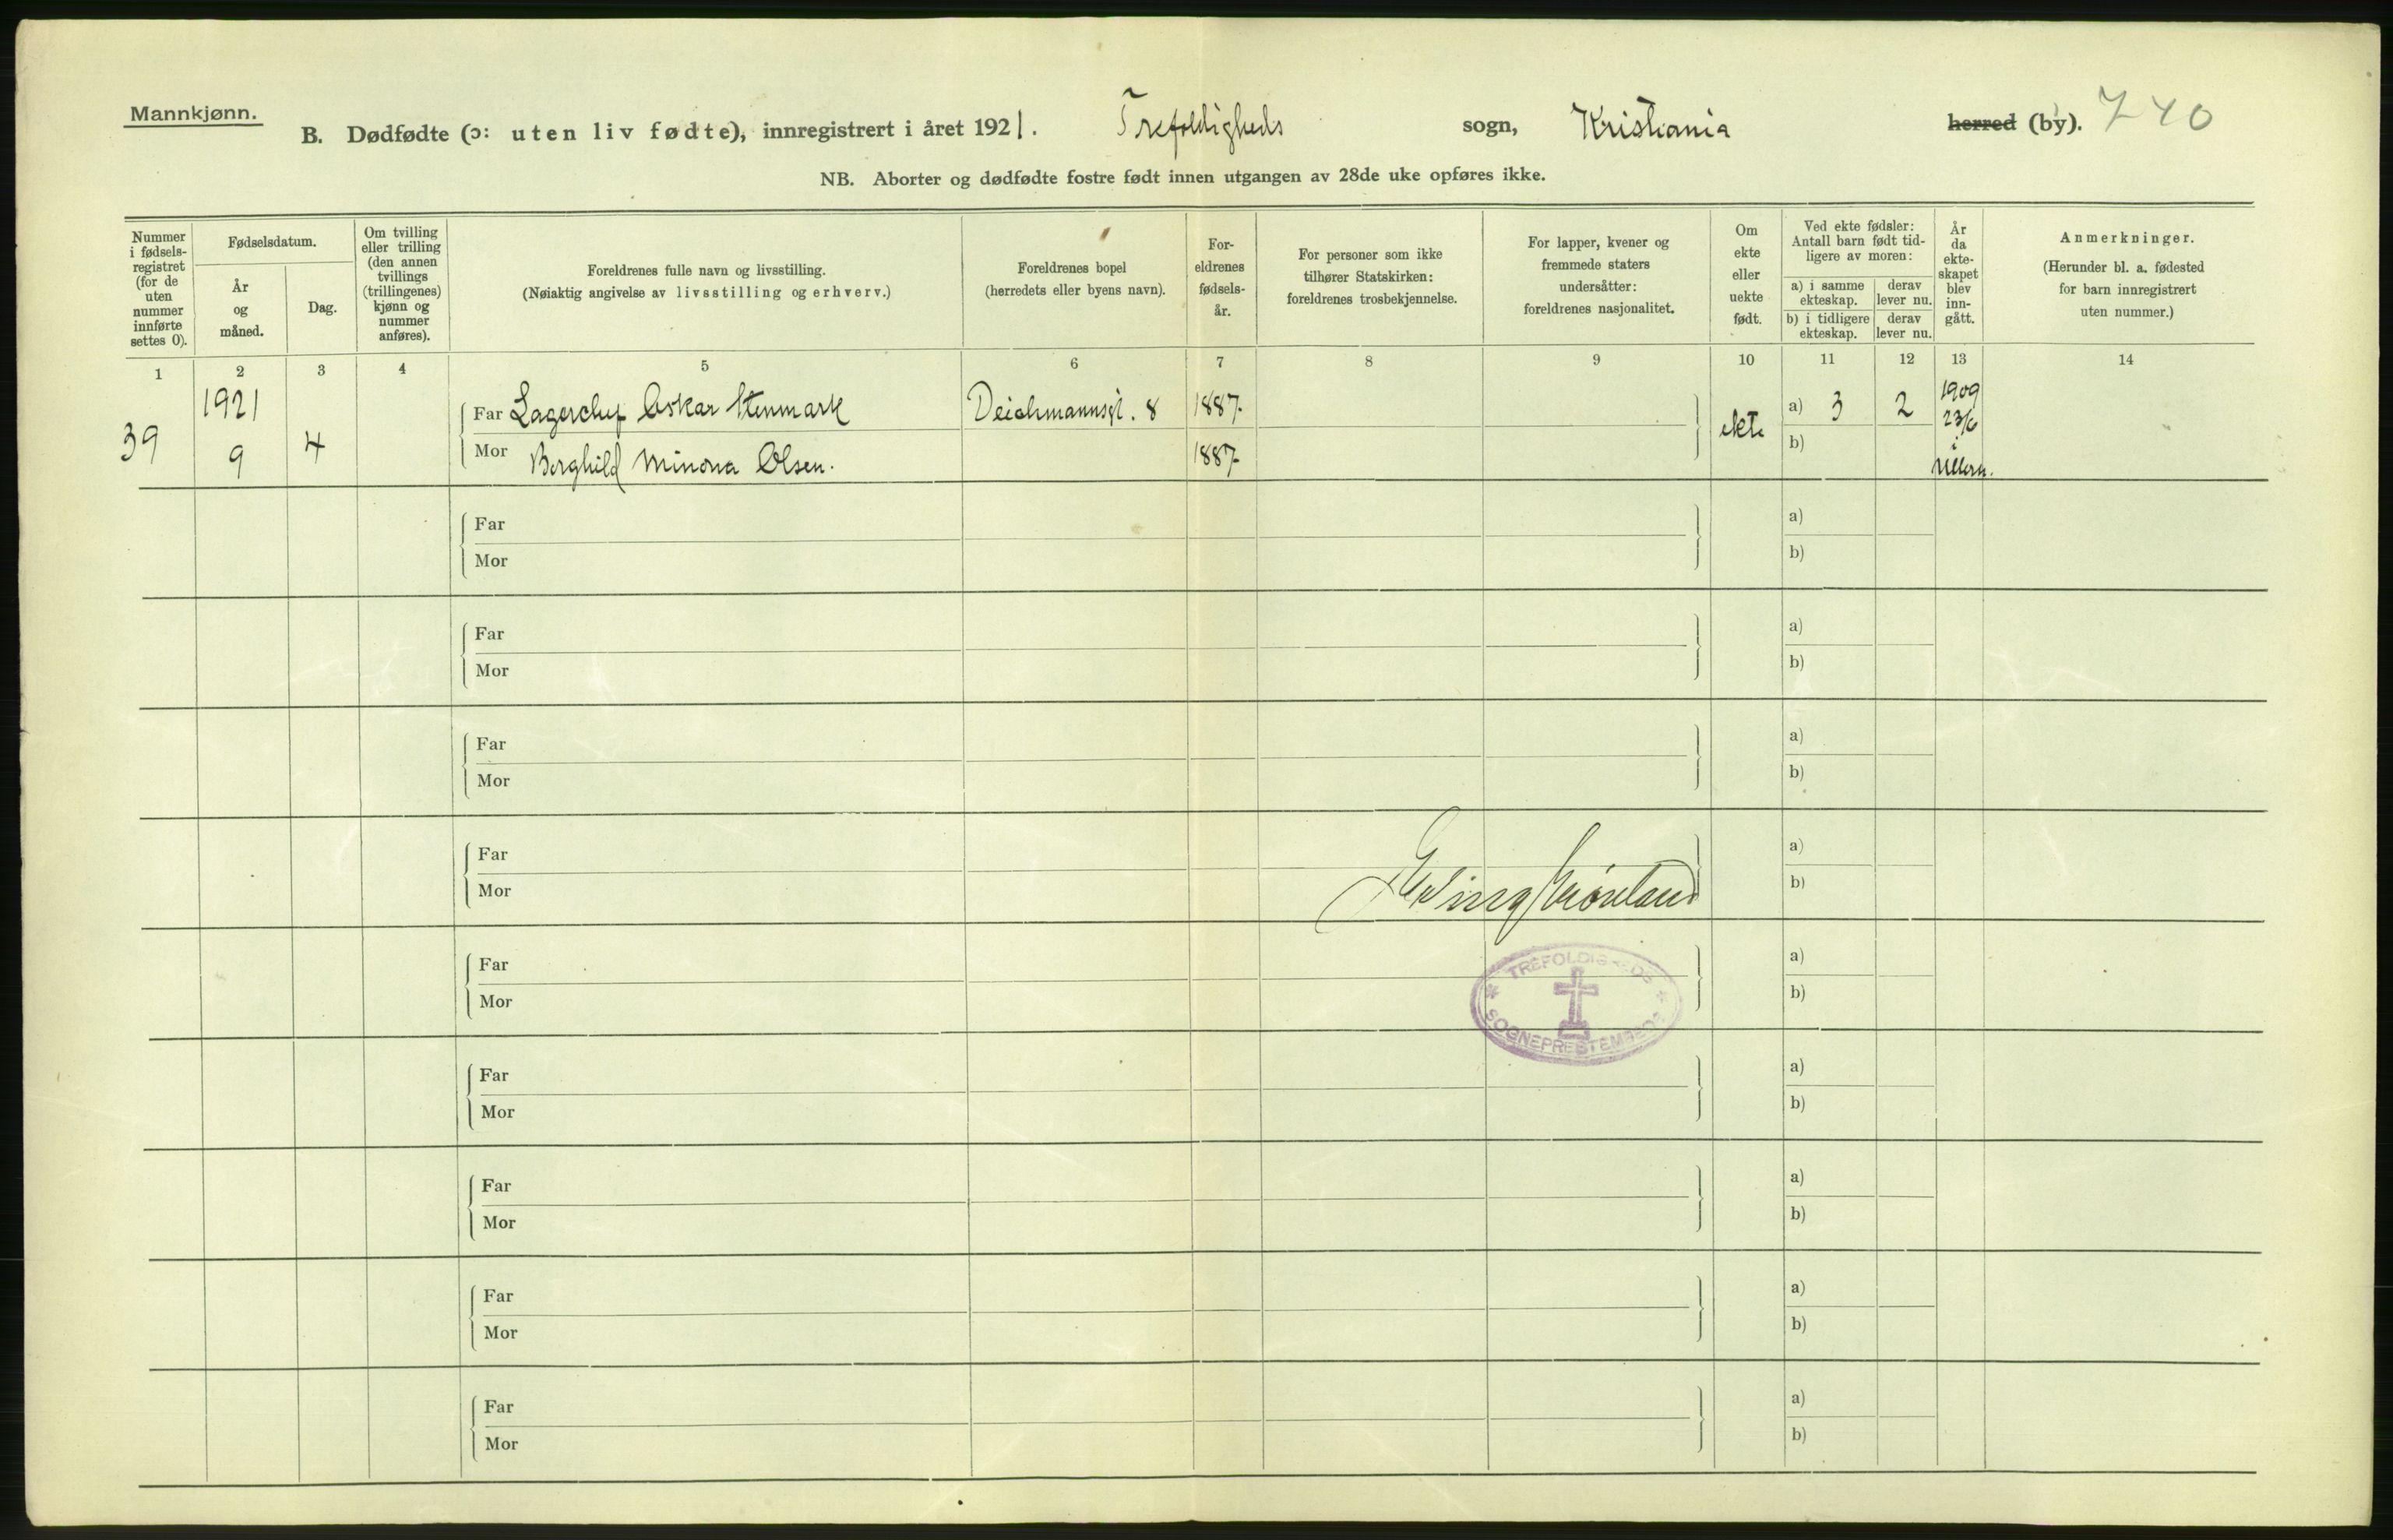 Mannkjønn.
B. Dødfødte (ɔ: uten liv fødte), innregistrert i året 1921. Trefoldigheds sogn, Kristiania herred (by). 740
NB. Aborter og dødfødte fostre født innen utgangen av 28de uke opføres ikke.
Nummer i fødsels-registret (for de uten nummer innførte settes 0).
Fødselsdatum.
År og måned.
Dag.
Om tvilling eller trilling (den annen tvillings (trillingenes) kjønn og nummer anføres).
Foreldrenes fulle navn og livsstilling.
(Nøiaktig angivelse av livsstilling og erhverv.)
Foreldrenes bopel
(herredets eller byens navn).
For-eldrenes fødsels-år.
For personer som ikke tilhører Statskirken: foreldrenes trosbekjennelse.
For lapper, kvener og fremmede staters undersåtter: foreldrenes nasjonalitet.
Om ekte eller uekte født.
Ved ekte fødsler: Antall barn født tid-ligere av moren:
a) i samme ekteskap.
derav lever nu.
b) i tidligere ekteskap.
derav lever nu.
År da ekte-skapet blev inn-gått.
Anmerkninger.
(Herunder bl. a. fødested for barn innregistrert uten nummer.)
1 2 3 4 5 6 7 8 9 10 11 12 13 14
39 1921 9 4
Far Lagerchef Oskar Stenmark Deichmannsgt. 8 1887 ekte a) 3 2 1909 23/6 i Ullern.
Mor Borghild Minona Olsen. 1887 b)
Far a)
Mor b)
Far a)
Mor b)
Far a)
Mor b)
Far a)
Mor b)
Far a)
Mor b)
TREFOLDIGHEDS
SOGNEPRESTEMBEDE
Far a)
Mor b)
Far a)
Mor b)
Far a)
Mor b)
Far a)
Mor b)